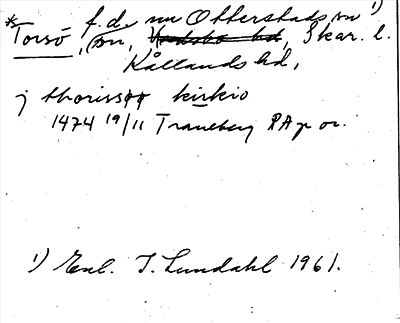 * Torsö, f.d. sn, nu Otterstads sn 1)
Vadsbo hd, Skar. l.
Kållands hd,
j thorissøø kirkio
1474 19/11 Traneberg RAp or.
1) Enl. I. Lundahl 1961.